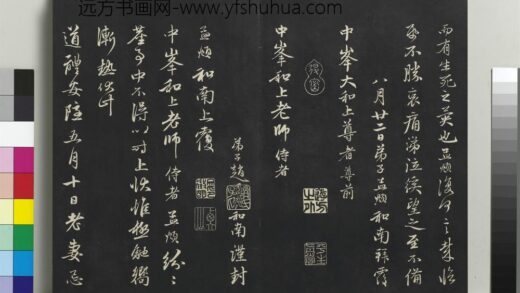 远方书画网-www.yfshuhua.com
而有生死之異也孟頫復何言哉臨
紙不勝哀痛涕泣俟望之至不備
八月廿二日弟子孟頫和南拜覆
中峯大和上尊者尊前
中峯和上老師 侍者
弟子趙 和南謹封
孟頫和南上覆
中峯和上老師 侍者 孟頫紛紛
塵事中不得以時上狀惟極馳嚮
漸熱伏計
道體安隱五月十日老妻忌